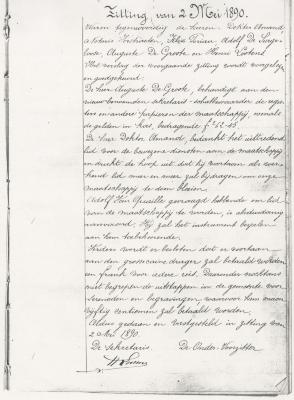 Zitting van 2 Mei 1890.
Waren tegenwoordig de heeren Dokter Armand
notaris Voorzitter, Adolf De
Auguste De Groote en Henri
Het verslag der voorgaande zitting wordt voorgelezen
en goedgekeurd.
De heer Auguste De Groote, behandigt aan den
nieuw benoemden sekretaris-schatbewaarder de regis-
ters en andere papieren der maatschappij, evenals
de gelden in kas, bedragende
De heer Dokter Armand bedankt het uittredend
lid voor de bewezene diensten aan de maatschappij
en drukt de hoop uit dat hij voortaan als eere-
lid mee en meer zal bijdragen om onze
maatschappij te doen bloeien.
Adolf Van gevraagd hebbende om lid
van de maatschappij te worden, is
aanvaard. Hij zal het instrument bespelen
aan hem toebehoorende.
Verders wordt er besloten dat er voortaan
aan den grootecaisse drager zal betaald worden
een frank voor iedere reis. Daaronder nochtans
niet begrepen de uitstappen in de gemeente voor
serenaden en begravingen, waarvoor hem maar
vijftig centiemen zal betaald worden.
Aldus gedaan en vastgesteld in zitting van
2 Mei 1890.
De Sekretaris. De Onder-Voorzitter